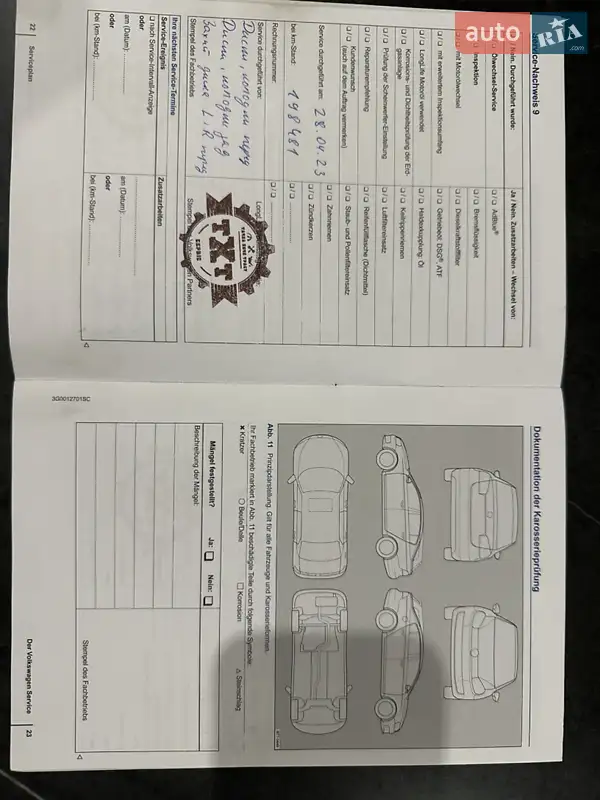 auto RIA .com
Service-Nachweis 9
Ja / Nein. Durchgeführt wurde:
Ölwechsel-Service
Inspektion
mit Motorölwechsel
mit erweitertem Inspektionsumfang
LongLife Motoröl verwendet
Korrosions- und Dichtheitsprüfung der Erdgasanlage
Prüfung der Scheinwerfer-Einstellung
Reparaturempfehlung
Kundenwunsch
(auch auf dem Auftrag vermerken)
Service durchgeführt am: 28.04.23
bei km-Stand: 198481
Rechnungsnummer:
Service durchgeführt von:
Stempel des Fachbetriebs
Ja / Nein. Zusatzarbeiten – Wechsel von:
AdBlue®
Bremsflüssigkeit
Dieselkraftstofffilter
Getriebeöl: DSG®, ATF
Haldexkupplung: Öl
Keilrippenriemen
Luftfiltereinsatz
Reifenfüllflasche (Dichtmittel)
Staub- und Pollenfiltereinsatz
Zahnriemen
Zündkerzen
TXT
СЕРВІС
Ihre nächsten Service-Termine
Service-Ereignis
nach Service-Intervall-Anzeige
oder
am (Datum):
oder
bei (km-Stand):
Zusatzarbeiten
am (Datum):
oder
bei (km-Stand):
22 Serviceplan
3G0012701BC
Dokumentation der Karosserieprüfung
Abb. 11 Prinzipdarstellung. Gilt für alle Fahrzeuge und Karosserieformen.
Ihr Fachbetrieb markiert in Abb. 11 beschädigte Teile durch folgende Symbole:
× Kratzer ○ Beule/Delle □ Korrosion △ Steinschlag
Mängel festgestellt? Ja: Nein:
Beschreibung der Mängel:
Stempel des Fachbetriebs
Der Volkswagen Service 23